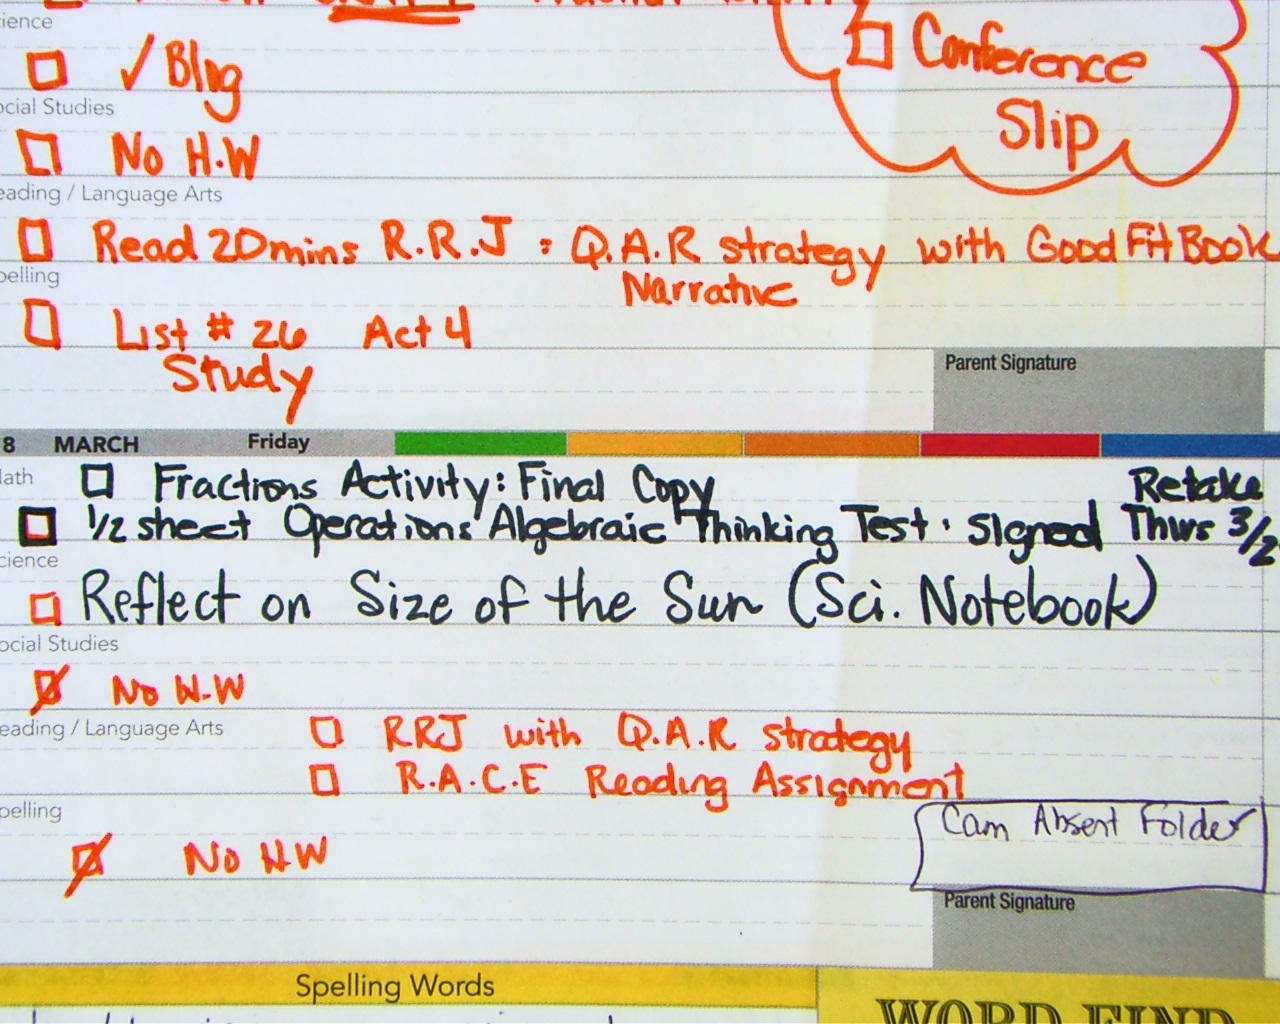 ience
✓ Blog
ocial Studies
No H.W
Conference
Slip
eading / Language Arts
Read 20mins R.R.J : Q.A.R strategy with Good Fit Book
Narrative
pelling
List # 26 Act 4
Study
Parent Signature
8 MARCH Friday
ath
Fractions Activity: Final Copy
Retake
1/2 sheet Operations Algebraic Thinking Test · Signed Thurs 3/2
cience
Reflect on Size of the Sun (Sci. Notebook)
ocial Studies
No H.W
eading / Language Arts
RRJ with Q.A.R strategy
R.A.C.E Reading Assignment
pelling
Cam Absent Folder
No H.W
Parent Signature
Spelling Words
WORD FIND